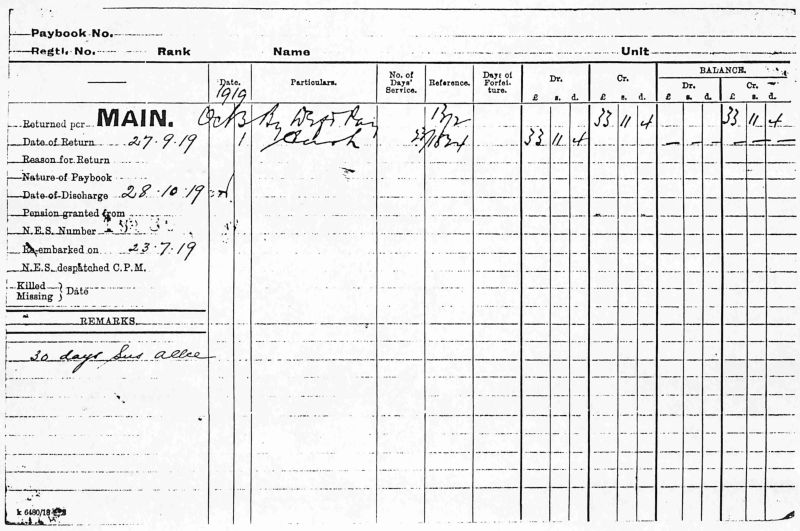 Paybook No.
Regtl. No. Rank Name Unit
Date. Particulars. No. of Days' Service. Reference. Days of Forfeiture. Dr. Cr. BALANCE.
Dr. Cr.
£ s. d. £ s. d. £ s. d. £ s. d.
1919
Returned per MAIN. Oct 3 By Pay 13/2 33 11 4 33 11 4
Date of Return 27.9.19 1 Cash 33 11 4 — — — — — —
Reason for Return
Nature of Paybook
Date of Discharge 28.10.19
Pension granted from
N.E.S. Number
Re-embarked on 23.7.19
N.E.S. despatched C.P.M.
Killed
Missing } Date
REMARKS.
30 days Sus allce
k 6480/18